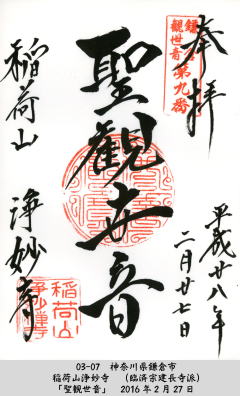 奉拝
鎌
観世音
第九番
平成廿八年
二月廿七日
聖観世音
稲荷山
浄妙寺
稲荷山
浄妙禅寺
03-07　神奈川県鎌倉市
稲荷山浄妙寺　（臨済宗建長寺派）
「聖観世音」　2016年2月27日